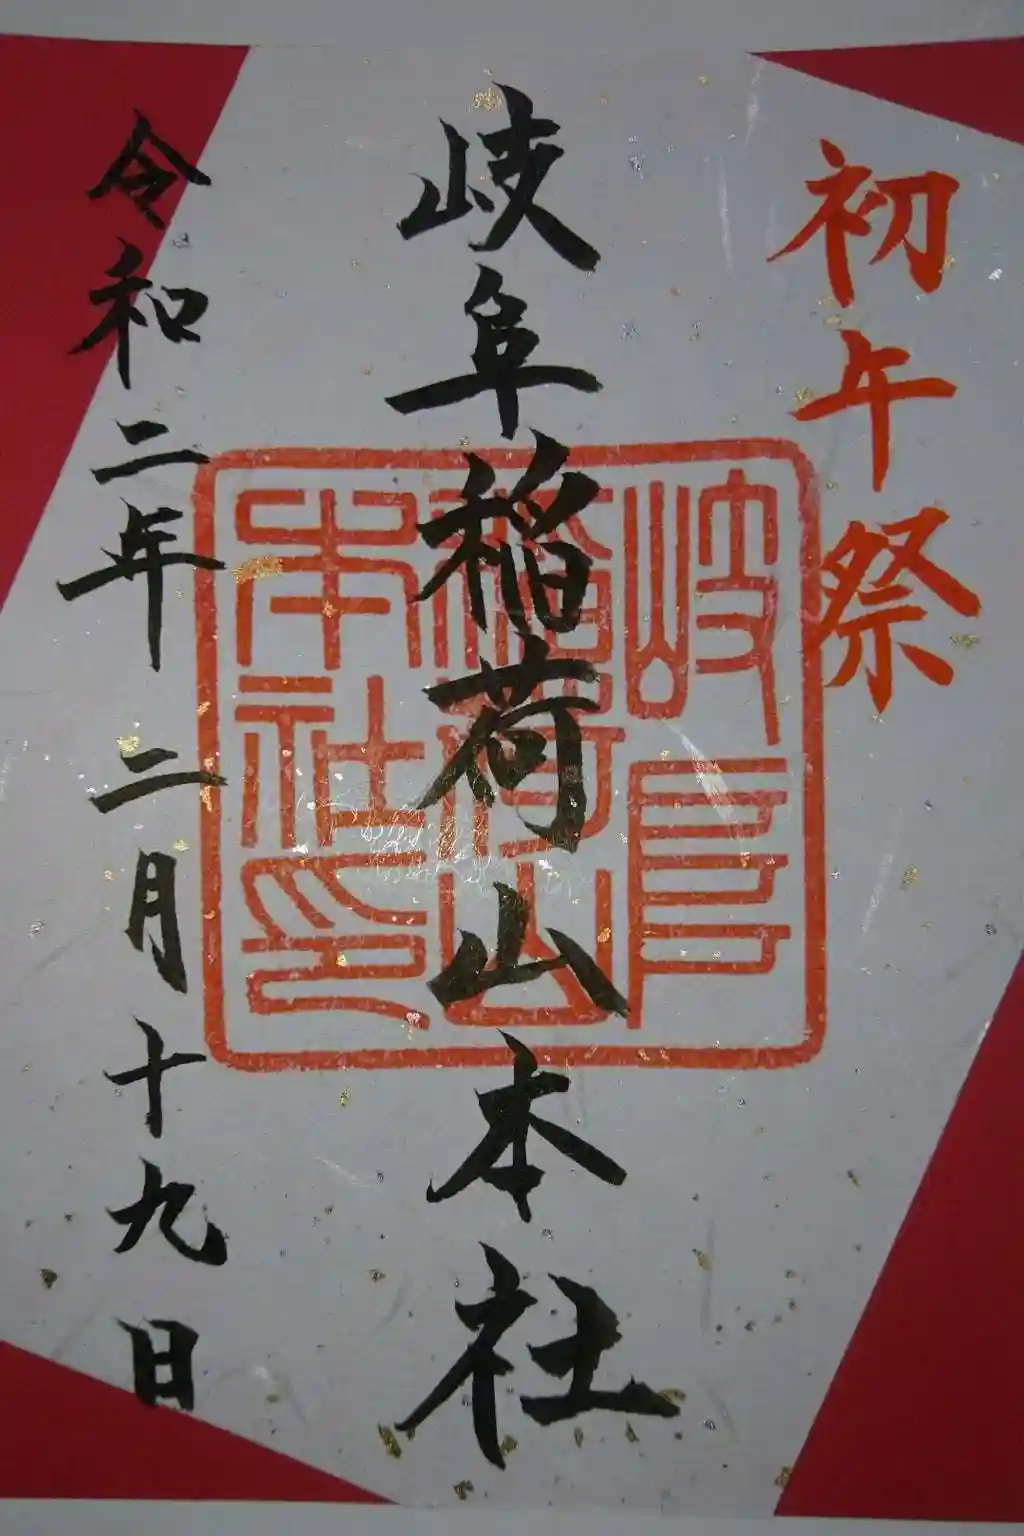 初午祭
岐阜稲荷山本社
岐阜
稲荷山
本社印
令和二年二月十九日